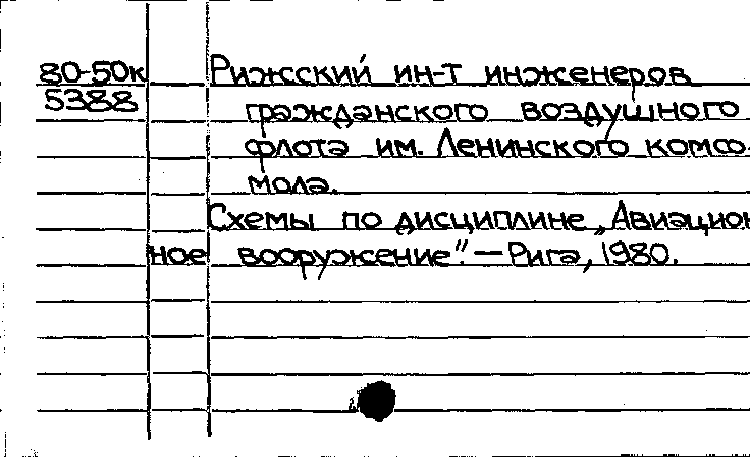 80-50к Рижсский ин-т инженеров
5388 гражданского воздушного
флота им. Ленинского комсо-
мола.
Схемы по дисциплине „Авиацион
ное вооружение". — Рига, 1980.